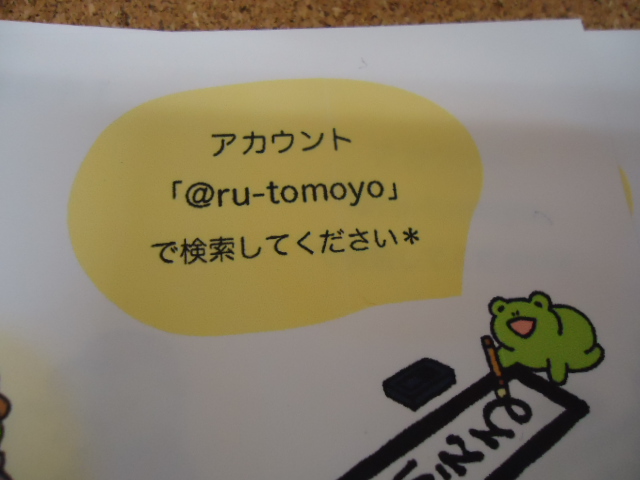 アカウント
「@ru-tomoyo」
で検索してください*